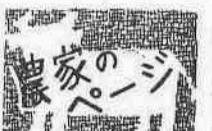 農家の
ページ